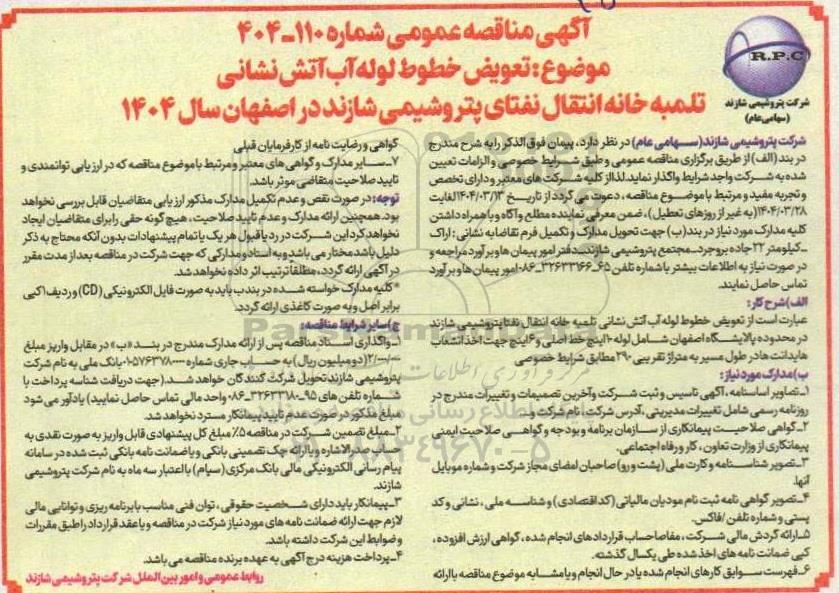 آگهی مناقصه عمومی شماره ۱۱۰-۴۰۴
موضوع: تعویض خطوط لوله آب آتش نشانی
تلمبه خانه انتقال نفتای پتروشیمی شازند در اصفهان سال ۱۴۰۴
R.P.C
شرکت پتروشیمی شازند
(سهامی عام)
شرکت پتروشیمی شازند(سهامی عام) در نظر دارد، پیمان فوق الذکر را به شرح مندرج
در بند (الف) از طریق برگزاری مناقصه عمومی و طبق شرایط خصوصی و الزامات تعیین
شده به شرکت واجد شرایط واگذار نماید. لذا از کلیه شرکت های معتبر و دارای تخصص
و تجربه مفید و مرتبط با موضوع مناقصه، دعوت می گردد از تاریخ ۱۴۰۴/۰۳/۱۳ لغایت
۱۴۰۴/۰۳/۲۸ (به غیر از روزهای تعطیل)، ضمن معرفی نماینده مطلع و آگاه و با همراه داشتن
کلیه مدارک مورد نیاز در بند (ب) جهت تحویل مدارک و تکمیل فرم تقاضا به نشانی: اراک
ـ کیلومتر ۲۲ جاده بروجرد ـ مجتمع پتروشیمی شازند ـ دفتر امور پیمان ها و برآورد مراجعه و
در صورت نیاز به اطلاعات بیشتر با شماره تلفن ۶۵-۳۲۶۳۳۱۶۶-۰۸۶ امور پیمان ها و برآورد
تماس حاصل نمایند.
الف) شرح کار:
عبارت است از تعویض خطوط لوله آب آتش نشانی تلمبه خانه انتقال نفتا پتروشیمی شازند
در محدوده پالایشگاه اصفهان شامل لوله ۱۰ اینچ خط اصلی و ۶ اینچ جهت اخذ انشعاب
هایدانت ها در طول مسیر به متراژ تقریبی ۲۹۰ مطابق شرایط خصوصی
ب) مدارک مورد نیاز:
۱ـ تصاویر اساسنامه، آگهی تاسیس و ثبت شرکت و آخرین تصمیمات و تغییرات مندرج در
روزنامه رسمی شامل تغییرات مدیریتی، آدرس شرکت، نام شرکت و...
۲ـ گواهی صلاحیت پیمانکاری از سازمان برنامه و بودجه و گواهی صلاحیت ایمنی
پیمانکاری از وزارت تعاون، کار و رفاه اجتماعی.
۳ـ تصویر شناسنامه و کارت ملی (پشت و رو) صاحبان امضای مجاز شرکت و شماره موبایل
آنها.
۴ـ تصویر گواهی نامه ثبت نام مودیان مالیاتی (کد اقتصادی) و شناسه ملی، نشانی و کد
پستی و شماره تلفن / فاکس.
۵ـ ارائه گردش مالی شرکت، مفاصاحساب قراردادهای انجام شده، گواهی ارزش افزوده،
کپی ضمانت نامه های اخذ شده طی یکسال گذشته.
۶ـ فهرست سوابق کارهای انجام شده یا در حال انجام و یا مشابه موضوع مناقصه با ارائه
گواهی و رضایت نامه از کارفرمایان قبلی
۷ـ سایر مدارک و گواهی های معتبر و مرتبط با موضوع مناقصه که در ارزیابی توانمندی و
تایید صلاحیت متقاضی موثر باشد.
توجه: در صورت نقص و عدم تکمیل مدارک مذکور ارزیابی متقاضیان قابل بررسی نخواهد
بود. همچنین ارائه مدارک و عدم تایید صلاحیت، هیچ گونه حقی را برای متقاضیان ایجاد
نخواهد کرد این شرکت در رد یا قبول هر یک یا تمام پیشنهادات بدون آنکه محتاج به ذکر
دلیل باشد مختار می باشد و به اسناد و مدارکی که جهت شرکت در مناقصه بعد از مدت مقرر
در آگهی ارائه گردد، مطلقا ترتیب اثر داده نخواهد شد.
*کلیه مدارک خواسته شده در بند ب باید به صورت فایل الکترونیکی (CD) و ردیف ۱ کپی
برابر اصل و به صورت کاغذی ارائه گردد.
ج) سایر شرایط مناقصه:
۱ـ واگذاری اسناد مناقصه پس از ارائه مدارک مندرج در بند «ب» در مقابل واریز مبلغ
۲/۰۰۰/۰۰۰ (دو میلیون ریال) به حساب جاری شماره ۰۱۰۵۷۶۳۷۸۰۰۰۰ بانک ملی به نام شرکت
پتروشیمی شازند تحویل شرکت کنندگان خواهد شد. (جهت دریافت شناسه پرداخت با
شماره تلفن های ۹۵-۳۲۶۳۳۱۸۰-۰۸۶ واحد مالی تماس حاصل نمایید) یادآور می شود
مبلغ مذکور در صورت عدم تایید پیمانکار مسترد نخواهد شد.
۲ـ مبلغ تضمین شرکت در مناقصه ۵٪ مبلغ کل پیشنهادی قابل واریز به صورت نقدی به
حساب بالا اشاره و یا ارائه چک تضمینی بانکی و یا ضمانت نامه بانکی ثبت شده در سامانه
پیام رسانی الکترونیکی مالی بانک مرکزی (سپام) با اعتبار سه ماه به نام شرکت پتروشیمی
شازند.
۳ـ پیمانکار باید دارای شخصیت حقوقی، توان فنی مناسب با برنامه ریزی و توانایی مالی
لازم جهت ارائه ضمانت نامه های مورد نیاز شرکت در مناقصه و یا عقد قرارداد را طبق مقررات
و ضوابط این شرکت داشته باشد.
۴ـ پرداخت هزینه درج آگهی به عهده برنده مناقصه می باشد.
روابط عمومی و امور بین الملل شرکت پتروشیمی شازند